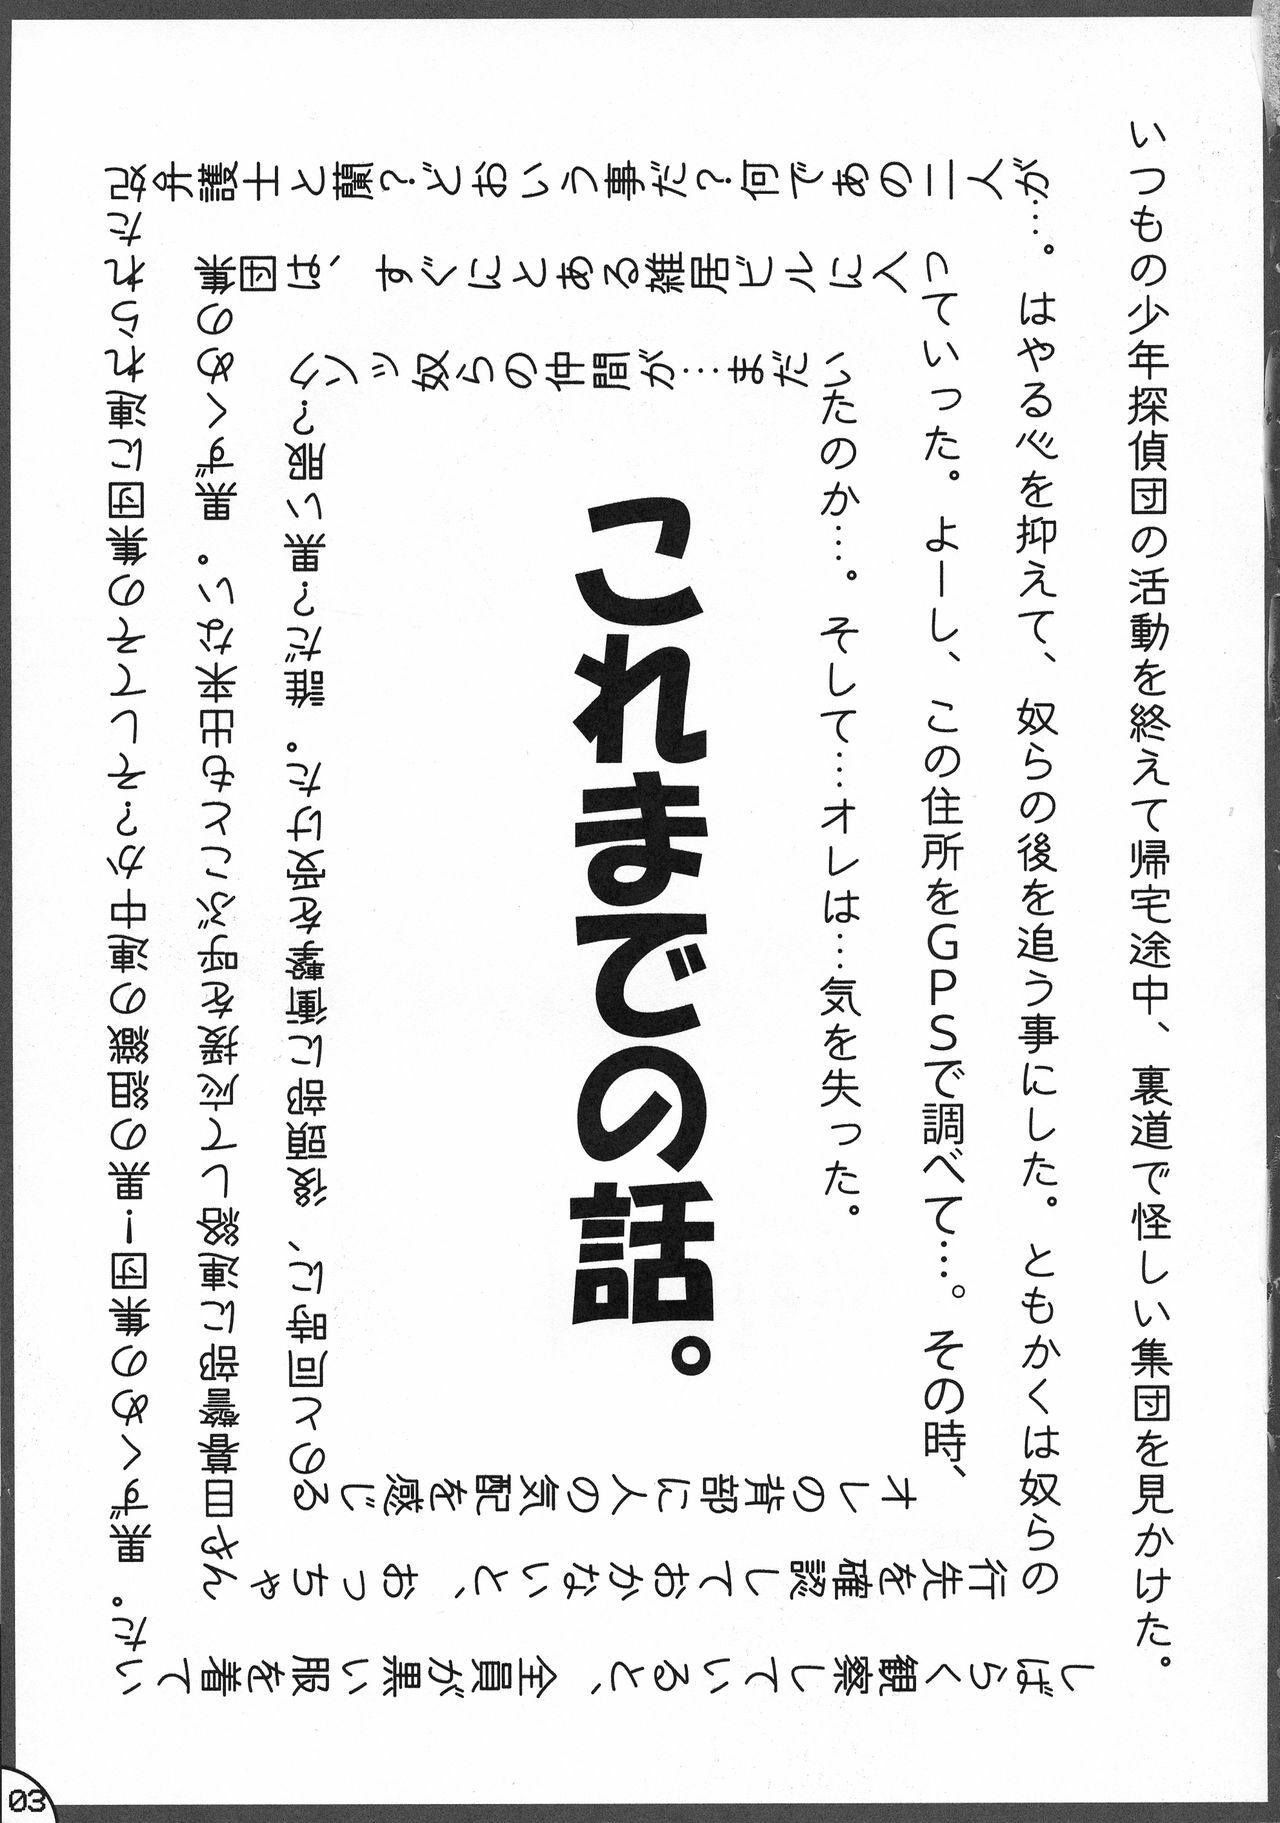 いつもの少年探偵団の活動を終えて帰宅途中、裏道で怪しい集団を見かけた。
しばらく観察していると、全員が黒い服を着てい
た。黒ずくめの集団!黒の組織の連中か?そしてその集団に連れられた
妃弁護士と蘭?どおいう事だ?何であの二人が
…。はやる心を抑えて、奴らの後を追う事にした。ともかくは奴らの
行先を確認しておかないと、おっちゃ
んや目暮警部に連絡して応援を呼ぶことも出来ない。黒ずくめの
集団は、すぐにとある雑居ビルに入
っていった。よーし、この住所をGPSで調べて…。その時、
オレの背部に人の気配を感じる
のと同時に、後頭部に衝撃を受けた。誰だ?黒い服?
クソッ奴らの仲間が…まだい
たのか…。そして…オレは…気を失った。
これまでの話。
03